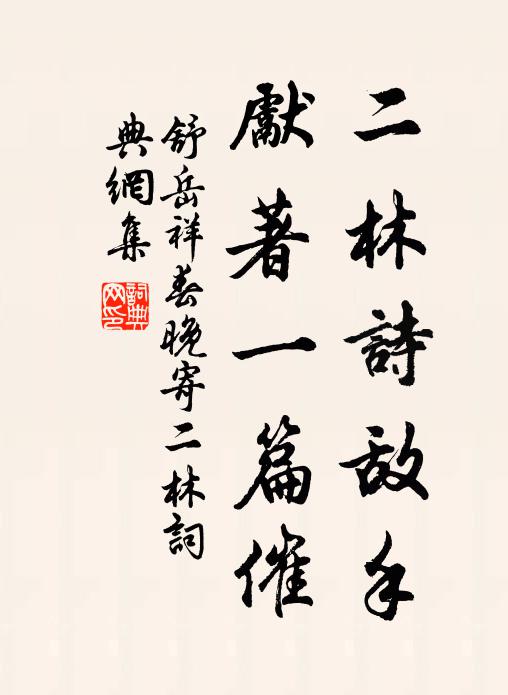 二林詩敌手
獻著一篇催
舒岳祥春晚寄二林詞
典網集
詞典网印